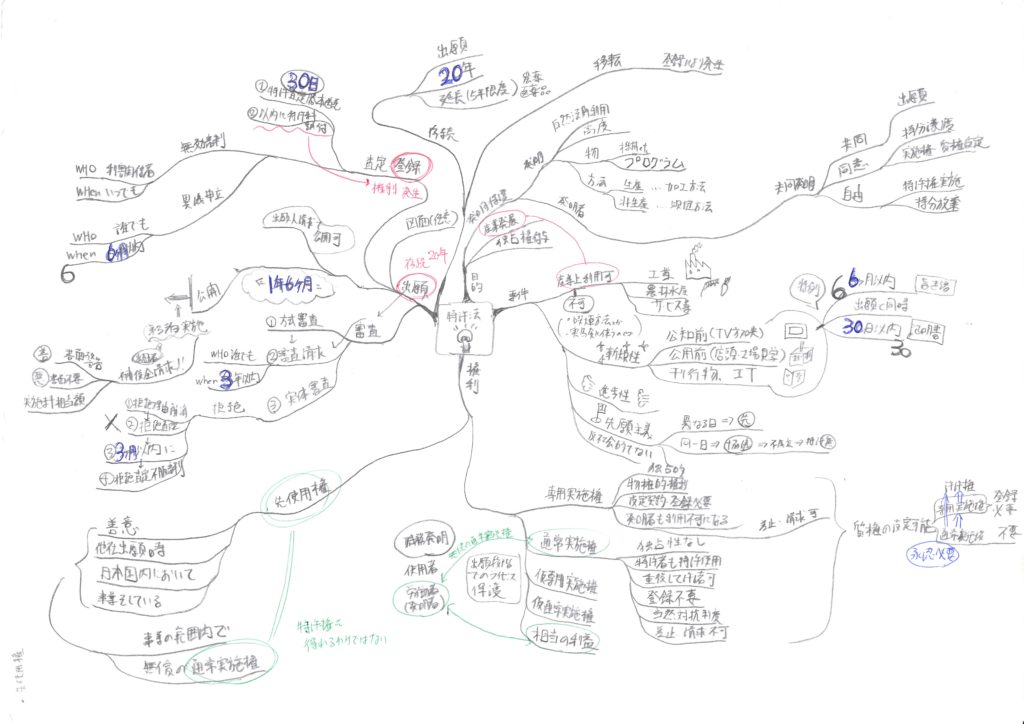 特許法
目的
産業発展
独占権付与
発明保護
発明
自然法則利用
高度
物
プログラム
方法
生産 … 加工方法
非生産 … 測定方法
発明者
共同発明
共同
出願
同意
持分譲渡
実施権
自由
特許権実施
持分放棄
移転
登録により発生
存続
出願
20年
延長(5年限度)
医薬品
査定 登録
30日
②以内に特許料
納付
権利発生
無効審判
WHO 利害関係者
When いつでも
異議申立
WHO 誰でも
when 6ヶ月以内
6
出願
存続20年
図面(任意)
出願人請求で
公開可
1年6ヶ月
公開
審査
①方式審査
②審査請求
WHO 誰でも
when 3年以内
③実体審査
拒絶
①拒絶理由通知
②
③3ヶ月以内に
④拒絶査定不服審判
補償金請求!!
実施料相当額
要件
産業上利用可
工業
農林水産
サービス業
不可
新規性
公知前(TV 
公用前(店頭、工場見学)
刊行物、IT
特例
6ヶ月以内
6
出願と同時
30日以内
30
進歩性
先願主義
異なる日⇒先
同一日⇒協議⇒不成立⇒
反社会的でない
権利
専用実施権
独占的
物権的権利
設定契約 登録必要
発明者も利用不可になる
差止 請求 可
通常実施権
独占性なし
特許者も特許使用
重複して許諾可
登録不要
当然対抗制度
差止 請求 不可
仮専用実施権
仮通常実施権
相当の利益
質権の設定可能
特許権
専用実施権
登録
必要
通常実施権
不要
承認必要
職務発明
使用者
労働者
(発明者)
出願段階
でのライセンス
保護
先使用権
善意
他社出願時
日本国内において
事業をしている
事業の範囲内で
無償の通常実施権
特許権を
得れるわけではない
・先使用権